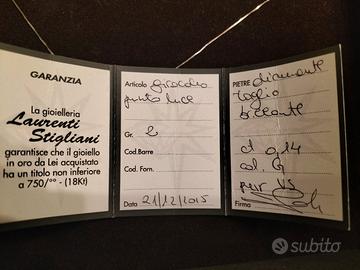 GARANZIA
La gioielleria
Laurenti
Stigliani
garantisce che il gioiello
in oro da Lei acquistato
ha un titolo non inferiore
a 750/°° - (18Kt)
Articolo girocollo
punto luce
Gr. 2
Cod.Barre
Cod. Forn.
Data 21/12/2015
PIETRE diamante
taglio
brillante
ct 0,14
col. G
pur VS
Firma
subito